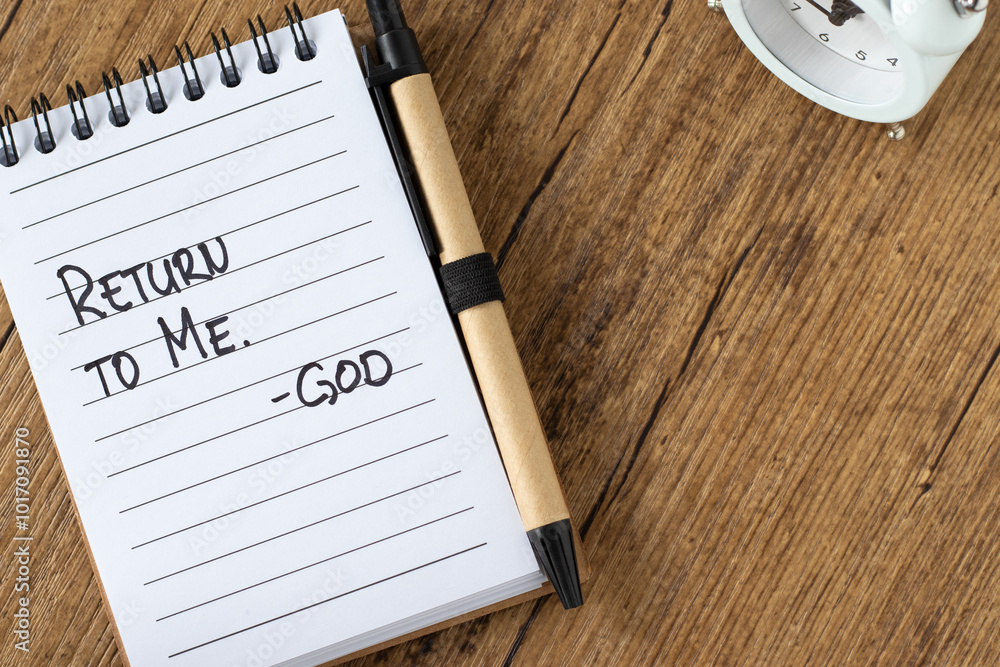 RETURN
TO ME.
-GOD
7
6
5
4
Adobe Stock | #1017091870